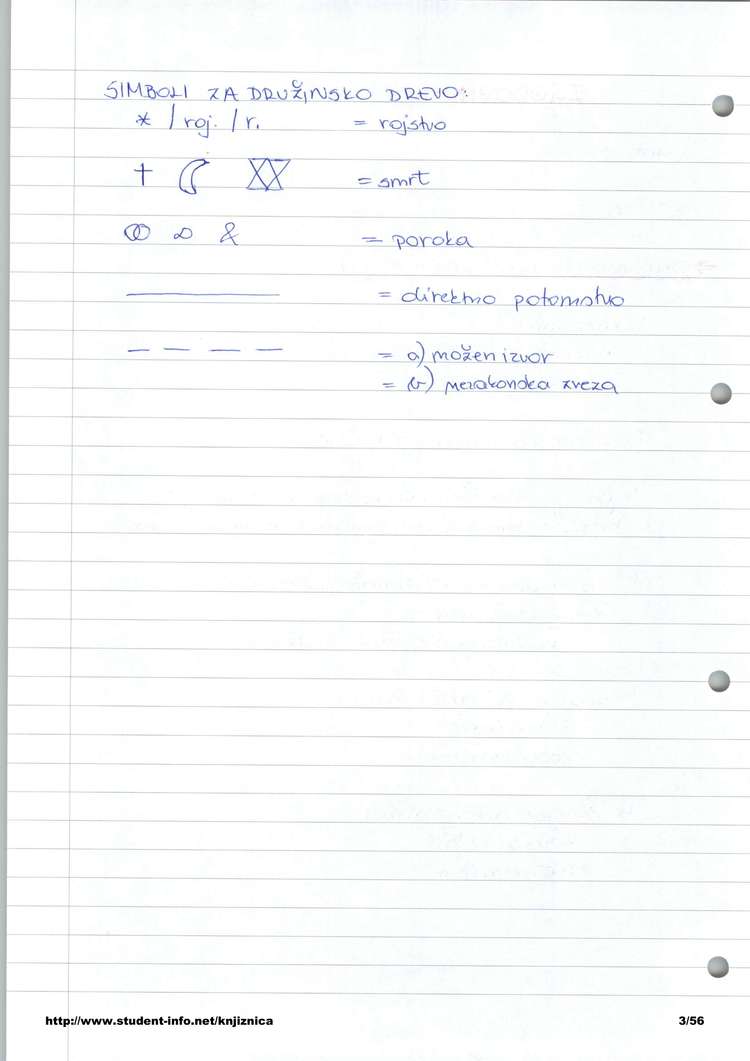 SIMBOLI ZA DRUŽINSKO DREVO:
* / roj. / r. = rojstvo
† = smrt
∞ & = poroka
= direktno potomstvo
= a) možen izvor
= b) nezakonska zveza
http://www.student-info.net/knjiznica 3/56